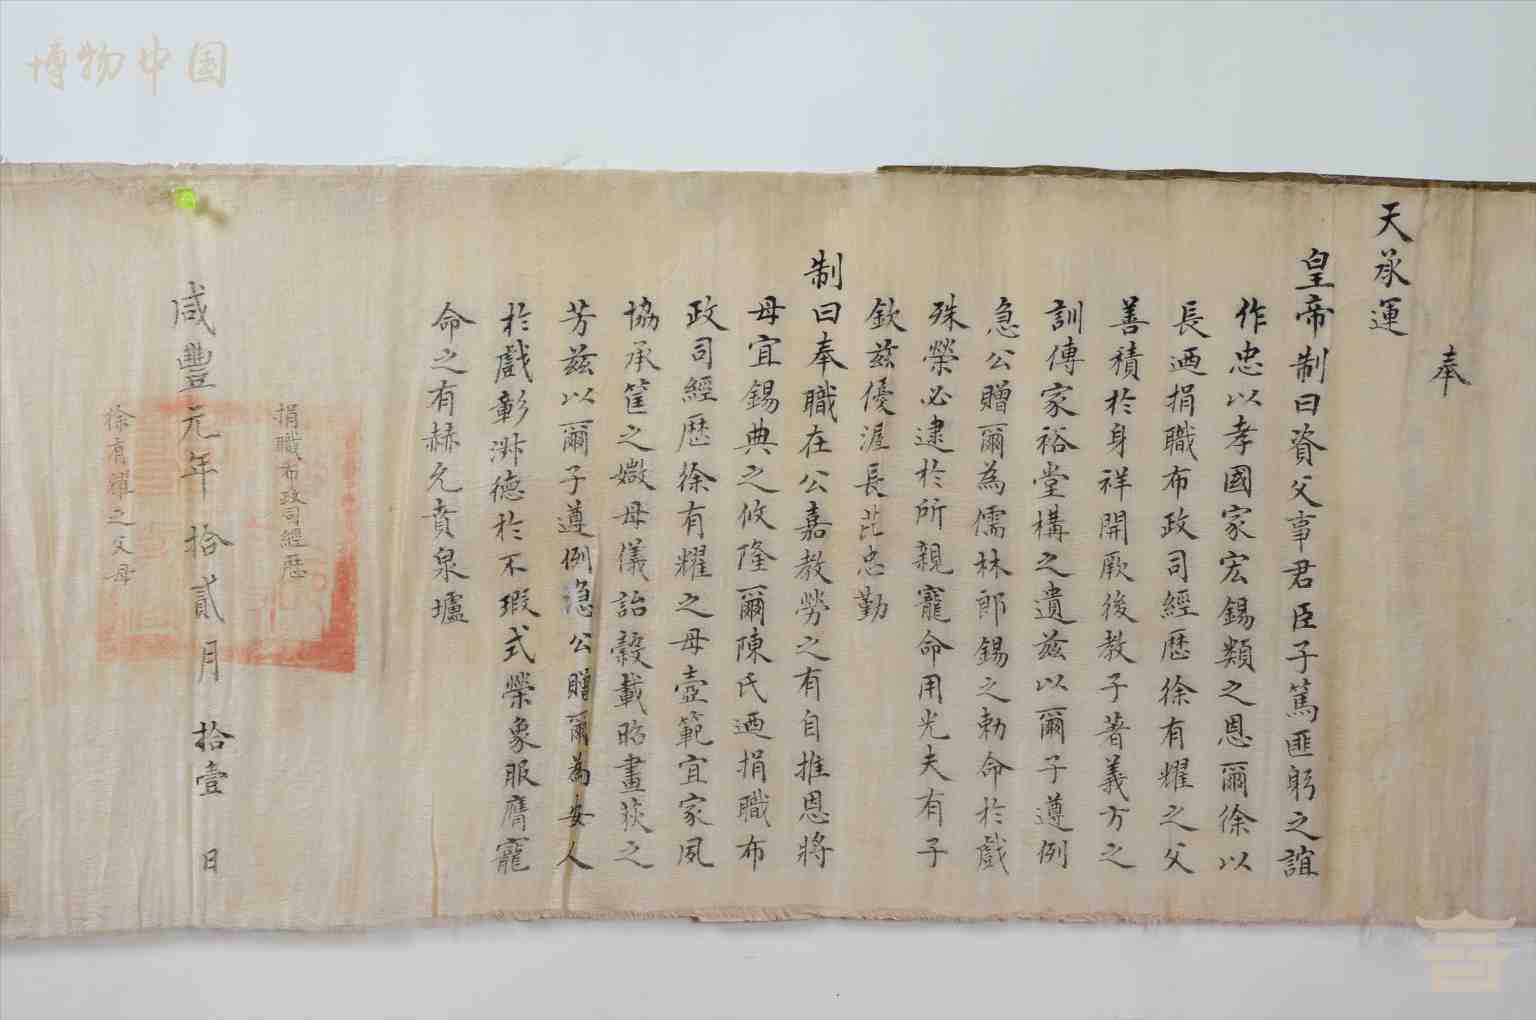 博物中国
奉
天承運
皇帝制曰資父事君臣子篤匪躬之誼
作忠以孝國家宏錫類之恩爾徐以
長迺捐職布政司經歷徐有耀之父
善積於身祥開厥後教子著義方之
訓傳家裕堂構之遺茲以爾子遵例
急公贈爾為儒林郎錫之勅命於戲
殊榮必逮於所親寵命用光夫有子
欽茲優渥長茈忠勤
制曰奉職在公嘉教勞之有自推恩將
母宜錫典之攸隆爾陳氏迺捐職布
政司經歷徐有耀之母壼範宜家夙
協承筐之媺母儀詒穀載昭畫荻之
芳茲以爾子遵例急公贈爾為安人
於戲彰淑德於不瑕式榮象服膺寵
命之有赫允賁泉壚
捐職布政司經歷
咸豐元年拾貳月拾壹日
徐有耀之父母